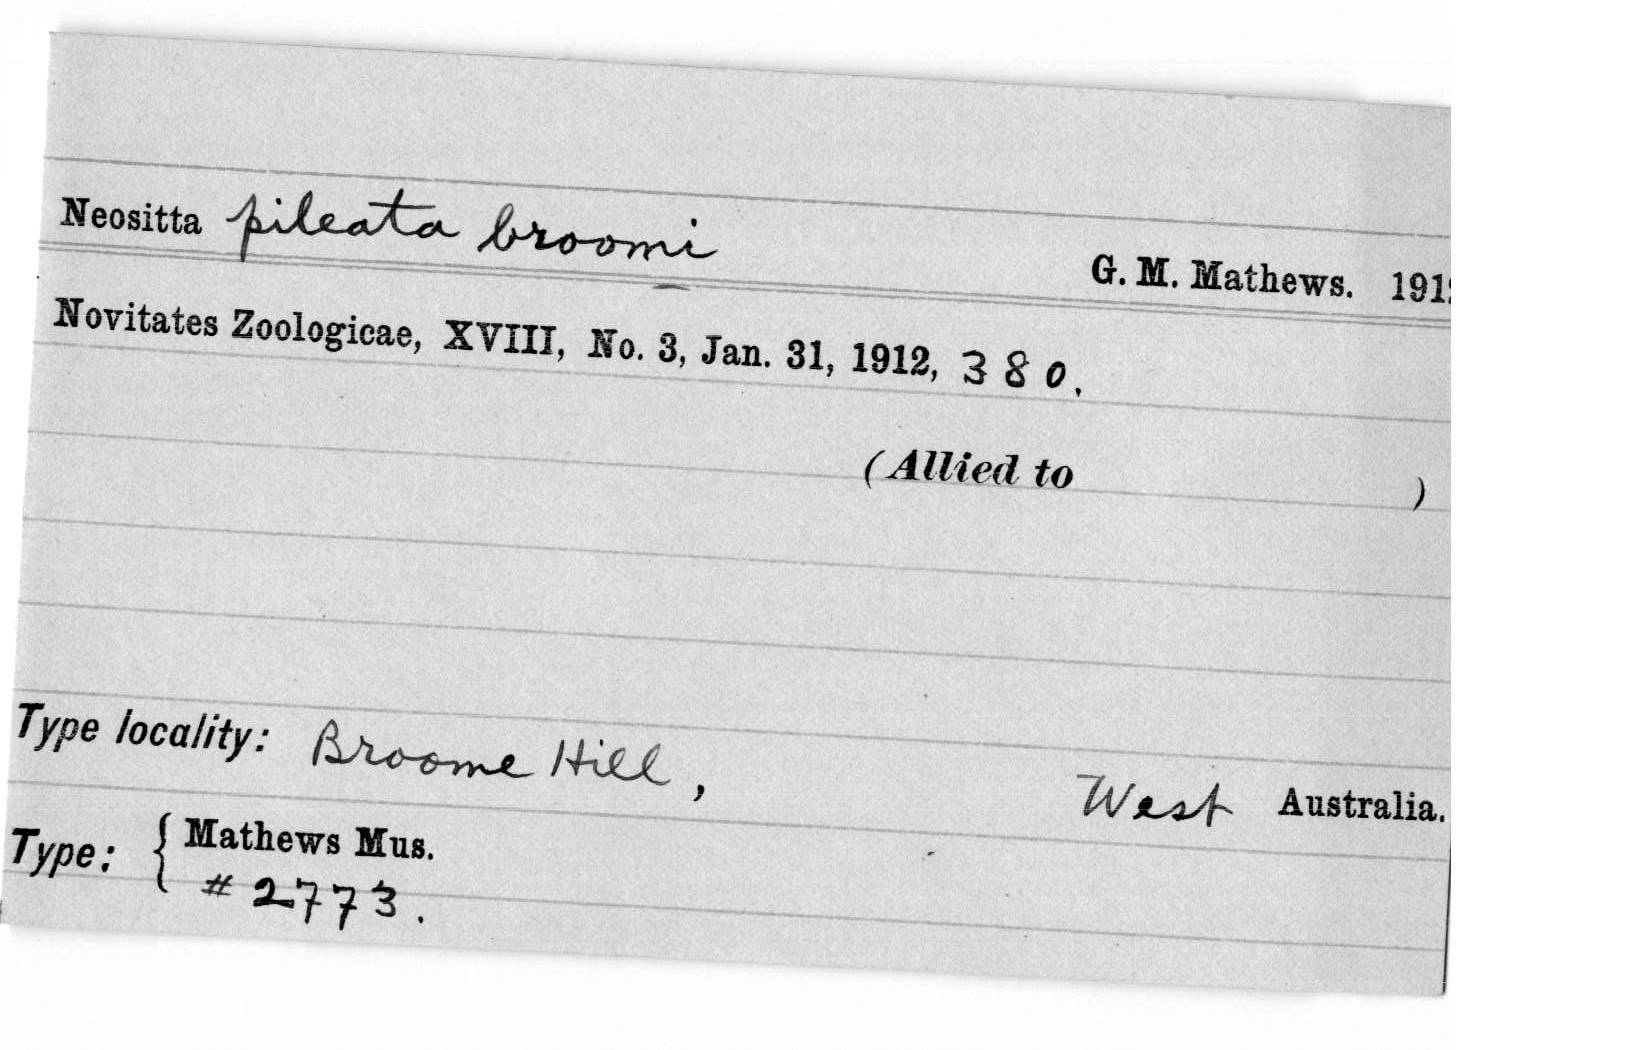 Neositta pileata broomi
G. M. Mathews. 1912
Novitates Zoologicae, XVIII, No. 3, Jan. 31, 1912, 380.
(Allied to )
Type locality: Broome Hill, West Australia.
Type: { Mathews Mus.
# 2773.